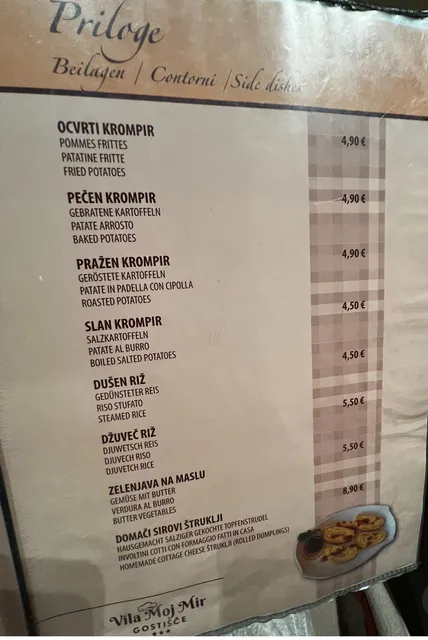 Priloge
Beilagen | Contorni | Side dishes
OCVRTI KROMPIR 4,90 €
POMMES FRITTES
PATATINE FRITTE
FRIED POTATOES
PEČEN KROMPIR 4,90 €
GEBRATENE KARTOFFELN
PATATE ARROSTO
BAKED POTATOES
PRAŽEN KROMPIR 4,90 €
GERÖSTETE KARTOFFELN
PATATE IN PADELLA CON CIPOLLA
ROASTED POTATOES
SLAN KROMPIR 4,50 €
SALZKARTOFFELN
PATATE AL BURRO
BOILED SALTED POTATOES
DUŠEN RIŽ 4,50 €
GEDÜNSTETER REIS
RISO STUFATO
STEAMED RICE
DŽUVEČ RIŽ 5,50 €
DJUWETSCH REIS
DJUVECH RISO
DJUVETCH RICE
ZELENJAVA NA MASLU 5,50 €
GEMÜSE MIT BUTTER
VERDURA AL BURRO
BUTTER VEGETABLES
DOMAČI SIROVI ŠTRUKLJI 8,90 €
HAUSGEMACHT SALZIGER GEKOCHTE TOPFENSTRUDEL
INVOLTINI COTTI CON FORMAGGIO FATTI IN CASA
HOMEMADE COTTAGE CHEESE ŠTRUKLJI (ROLLED DUMPLINGS)
Vila Moj Mir
GOSTIŠČE